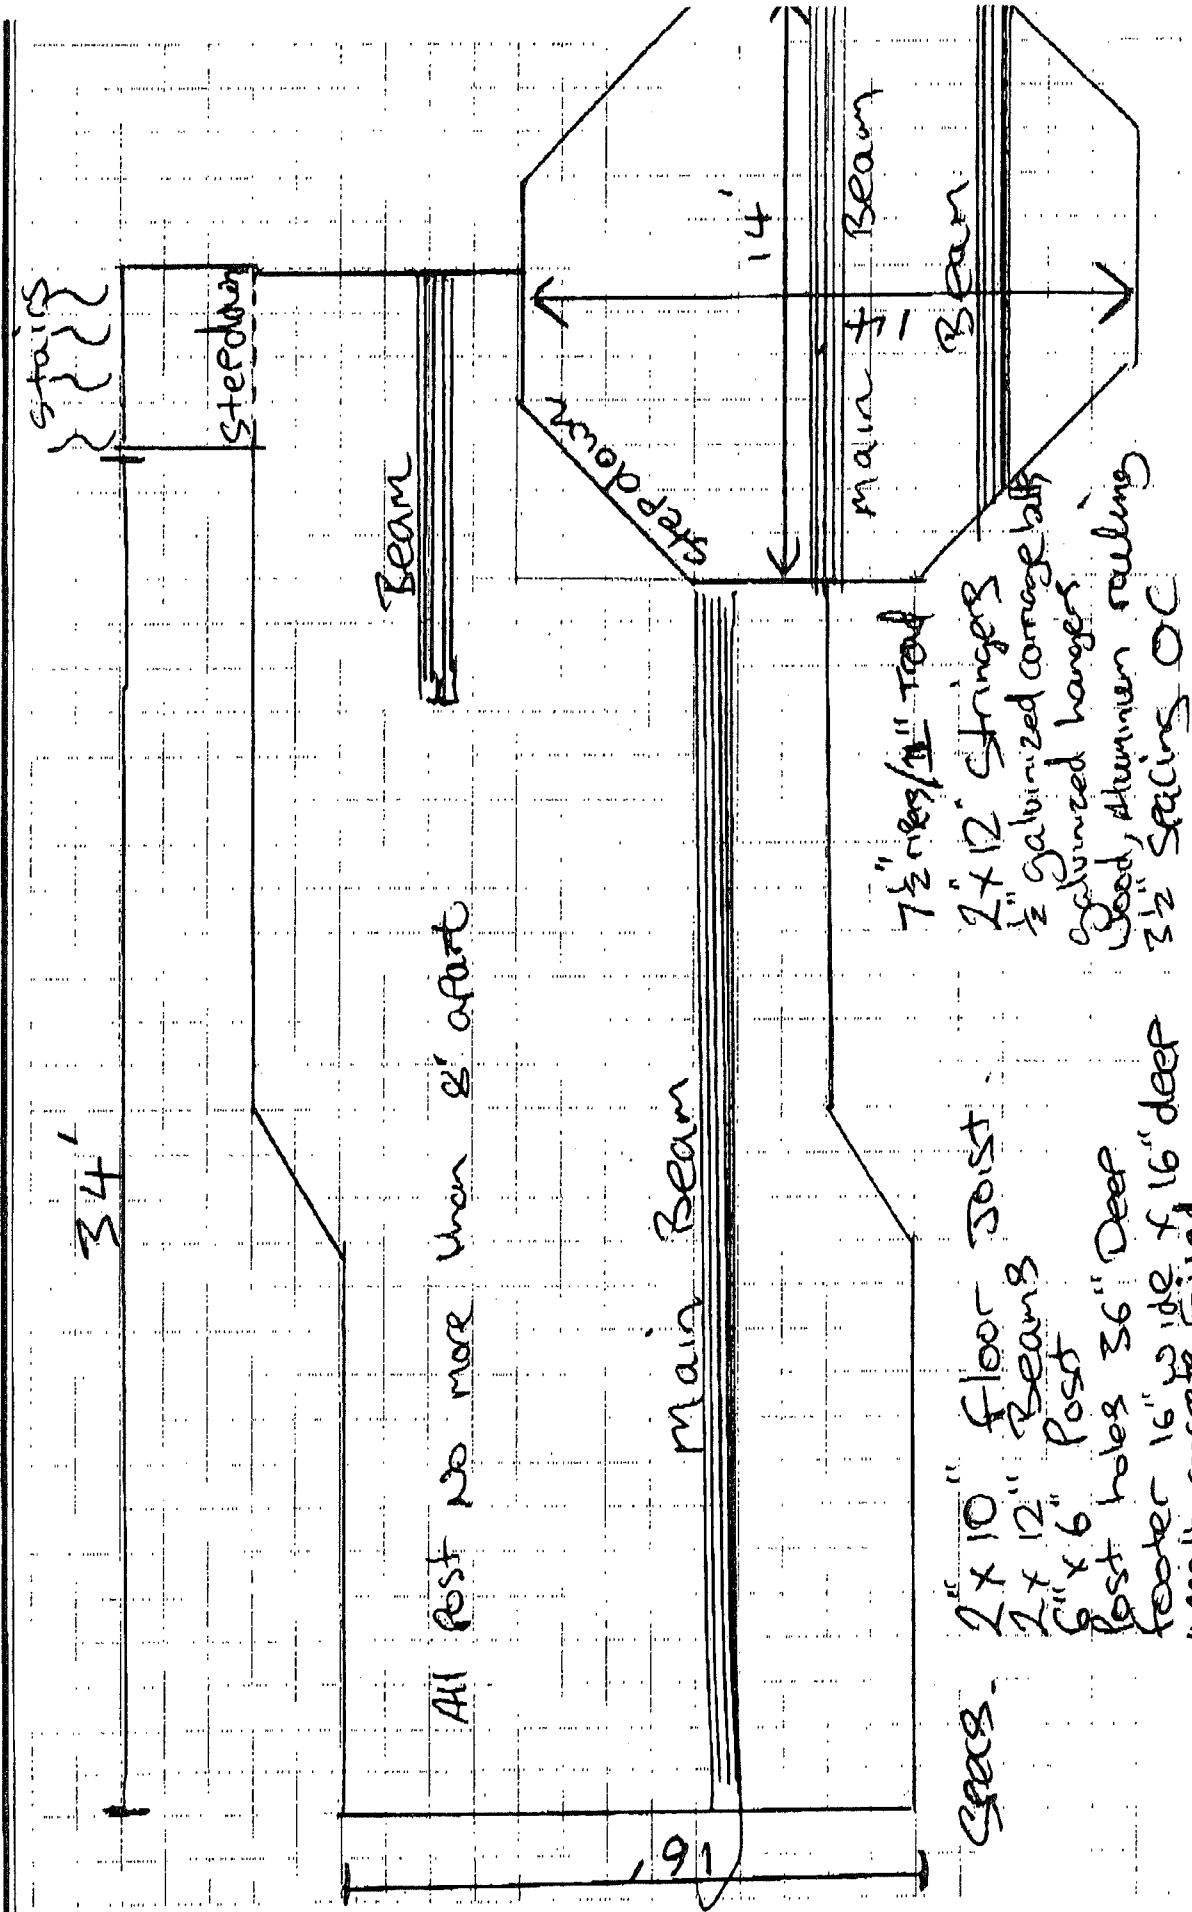 34'
stairs
stepdown
Beam
stepdown
14'
Main Beam
14
Beam
All Post No more than 8' apart
Main Beam
16'
Specs.
2" x 10" floor Joist.
2" x 12" Beams
6" x 6" Post
Post holes 36" Deep
footer 16" wide x 16" deep
7½" risers/11" Tread
2" x 12" stringers
½" galvinized carriage bolts
galvinized hangers
wood, Aluminum railing
3½" spacing OC